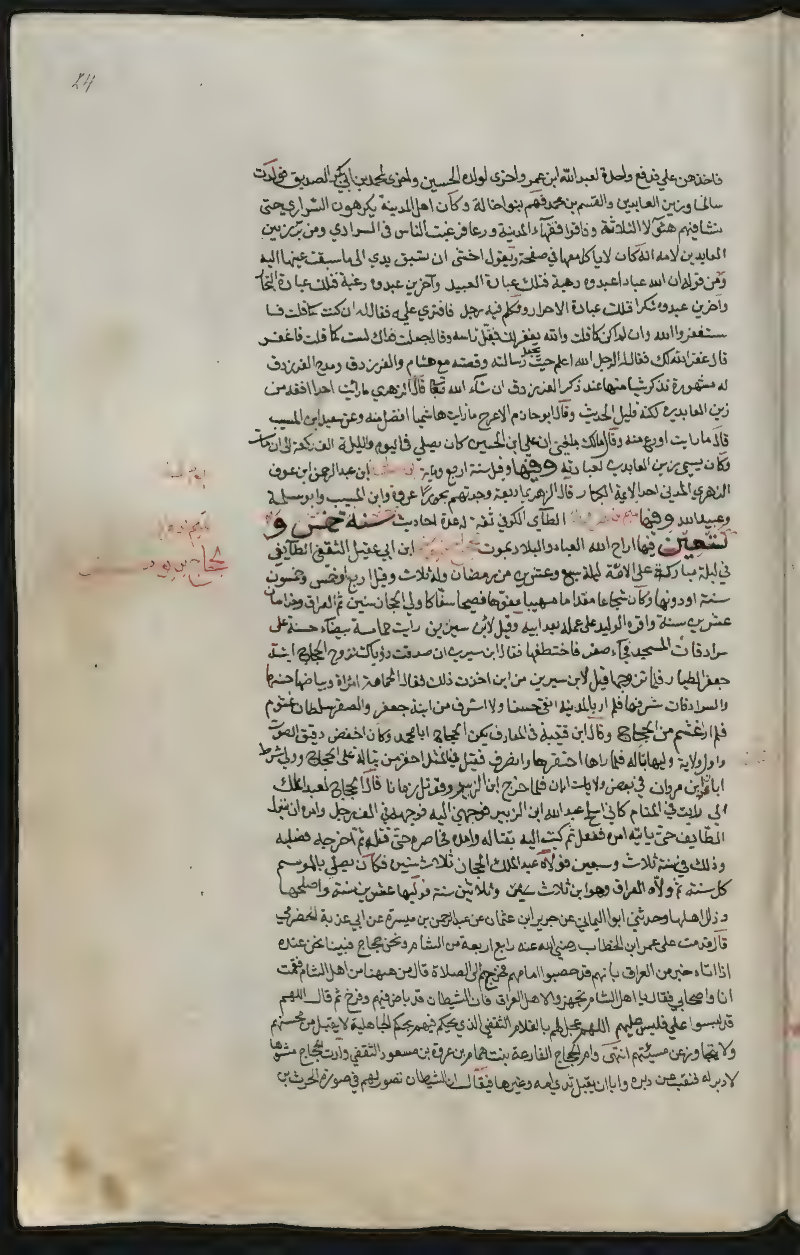 24
فاخذهن علي فدفع واحدة لعبد الله ابن عمر واخرى لولده الحسين واخرى لمحمد بن ابي بكر الصديق فولدت
سالما وزين العابدين والقسم بن محمد فهم بنو اخالة وكان اهل المدينة يكرهون السراري حتى
نشا فيهم هؤلا الثلاثة وفاقوا فقهاء المدينة ورعا فرغبت الناس في السراري ومن بر زين
العابدين لامه انه كان لا ياكل معها في صحفة ويقول اخشى ان تسبق يدي الى ما سبقت عينها اليه
ومن قوله ان الله عبادا عبدوه رهبة فتلك عبادة العبيد واخرين عبدوه رغبة فتلك عبادة التجار
واخرين عبدوه شكرا فتلك عبادة الاحرار وتكلم فيه رجل فافترى عليه فقال له ان كنت كما قلت فا
ستغفر الله وان لم اكن كما قلت والله يغفر لك فقبل راسه وقال جعلت فداك لست كما قلت فاغفر
قال غفر الله لك فقال الرجل الله اعلم حيث يجعل رسالته وقصته مع هشام والفرزدق ومدح الفرزدق
له مشهورة نذكر شيا منها عند ذكر الفرزدق ان شاء الله تعا قال الزهري ما رايت احدا افقه من
زين العابدين لكنه قليل الحديث وقال ابو حازم الاعرج ما رايت هاشميا افضل منه وعن سعيد ابن المسيب
قال ما رايت اورع منه وقال مالك بلغني ان علي ابن الحسين كان يصلي في اليوم والليلة الف ركعة الى ان مات
وكان يسمى زين العابدين لعبادته وفيها وقيل سنة اربع ومائة ابن عبد الرحمن ابن عوف
الزهري المدني احد الايمة الكبار قال الزهري اربعة وجدتهم بحورا عروة وابن المسيب وابو سلمة
وعبيد الله وفيها الطاي الكوفي ثقة له عدة احاديث سنة خمس و
تسعين فيها اراح الله العباد والبلاد بموت ابن ابي عقيل الثقفي الطايفي
في ليلة مباركة على الامة ليلة سبع وعشرين من رمضان وله ثلاث وقيل اربع او خمس وخمسون
سنة او دونها وكان شجاعا مقداما مهيبا مفوها فصيحا سفاكا ولي الحجاز سنين ثم العراق وخراسان
عشرين سنة واقره الوليد على عمله بعد ابيه وقيل لابن سيرين رايت حمامة بيضاء حسنة على
سرادقات المسجد فجاء صقر فاختطفها فقال ابن سيرين ان صدقت رؤياك تزوج الحجاج ابنة
جعفر الطيار فلما تزوجها قيل لابن سيرين من اين اخذت ذلك فقال الحمامة امراة وبياضها حسنها
والسرادقات شرفها فلم ار بالمدينة انقى حسنا ولا اشرف من ابنة جعفر والصقر سلطان غشوم
فلم ار اغشم من الحجاج وقال ابن قتيبة في المعارف يكنى الحجاج ابا محمد وكان اخفض دقيق الصوت
واول ولاية وليها تبالة فلما راها احتقرها وانصرف فقيل في المثل احقر من تبالة على الحجاج وولي شرط
ابان بن مروان في بعض ولايات ابان فلما خرج ابن الزبير وقوتل زمانا قال الحجاج لعبد الملك
اني رايت في المنام كاني اسلخ عبد الله ابن الزبير فوجهني اليه فوجهه في الف رجل وامره ان ينزل
الطايف حتى ياتيه امره ففعل ثم كتب اليه بقتاله وامده فحاصره حتى قتله ثم اخرجه فصلبه
وذلك في سنة ثلاث وسبعين فولاه عبد الملك الحجاز ثلاث سنين فكان يصلي بالموسم
كل سنة ثم ولاه العراق وهو ابن ثلاث وثلاثين سنة فوليها عشرين سنة واصلحها
وذلل اهلها وحدثني ابو اليماني عن جرير ابن عثمان عن عبد الرحمن بن ميسرة عن ابي عذبة الحضرمي
قال قدمت على عمر ابن الخطاب رضي الله عنه رابع اربعة من الشام ونحن حجاج فبينا نحن عنده
اذ اتاه خبر من العراق بانهم قد حصبوا امامهم فخرج الى الصلاة ثم قال من هاهنا من اهل الشام فقمت
انا واصحابي فقال يا اهل الشام تجهزوا لاهل العراق فان الشيطان قد باض فيهم وفرخ ثم قال اللهم
قد لبسوا علي فلبس عليهم اللهم عجل لهم بالغلام الثقفي الذي يحكم فيهم بحكم الجاهلية لا يقبل من محسنهم
ولا يتجاوز عن مسيئهم انتهى وام الحجاج الفارعة بنت همام بن عروة بن مسعود الثقفي ولدت الحجاج مشوها
لا دبر له فنقب عن دبره وابا ان يقبل ثدي امه وغيرها فيقال ان الشيطان تصور لهم في صورة الحرث بن